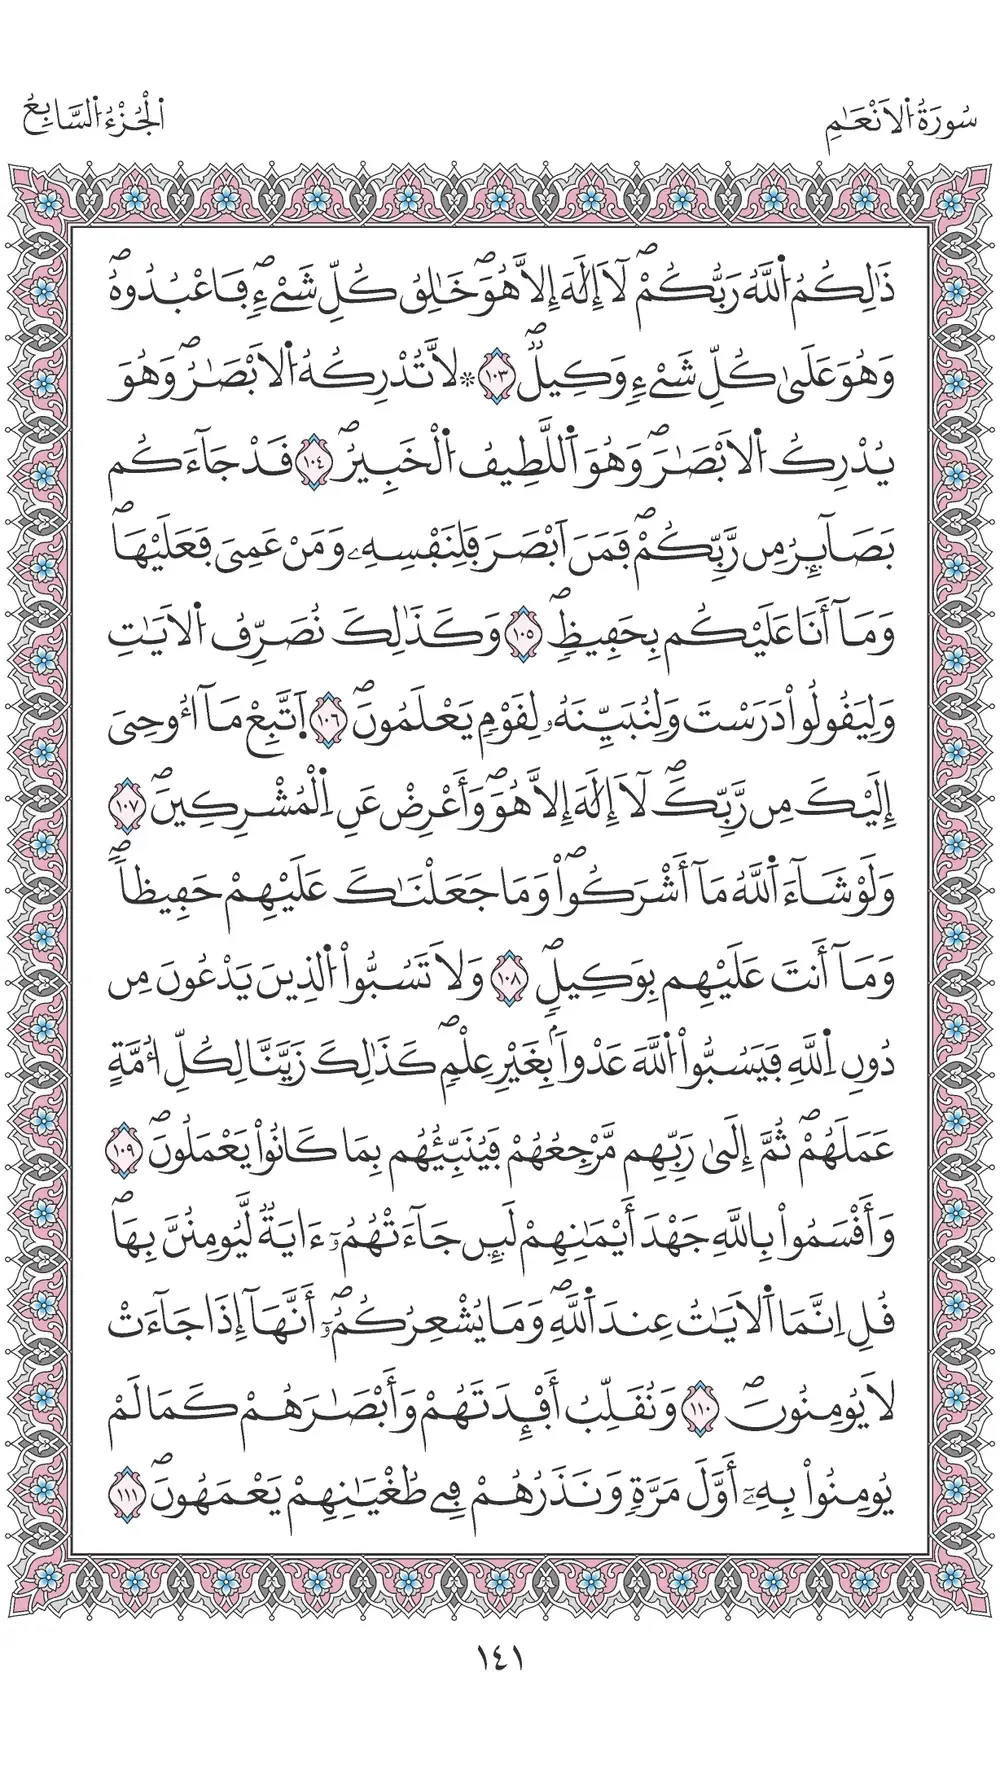 سُورَةُ اُ۬لَانْعَٰمِ
اَ۬لْجُزْءُ اُ۬لسَّابِعُ
ذَٰلِكُمُ اُ۬للَّهُ رَبُّكُمْۖ لَآ إِلَٰهَ إِلَّا هُوَۖ خَٰلِقُ كُلِّ شَےْءٖۖ فَاعْبُدُوهُۖ
وَهُوَ عَلَىٰ كُلِّ شَےْءٖ وَكِيلٞۖ ١٠٣ ۞لَّا تُدْرِكُهُ اُ۬لَابْصَٰرُۖ وَهُوَ
يُدْرِكُ اُ۬لَابْصَٰرَۖ وَهُوَ اَ۬للَّطِيفُ اُ۬لْخَبِيرُۖ ١٠٤ قَدْ جَآءَكُم
بَصَآئِرُ مِن رَّبِّكُمْۖ فَمَنَ اَبْصَرَ فَلِنَفْسِهِۦ وَمَنْ عَمِيَ فَعَلَيْهَاۖ
وَمَآ أَنَا عَلَيْكُم بِحَفِيظٖۖ ١٠٥ وَكَذَٰلِكَ نُصَرِّفُ اُ۬لَايَٰتِ
وَلِيَقُولُواْ دَرَسْتَ وَلِنُبَيِّنَهُۥ لِقَوْمٖ يَعْلَمُونَۖ ١٠٦ اَ۪تَّبِعْ مَآ أُوحِيَ
إِلَيْكَ مِن رَّبِّكَۖ لَآ إِلَٰهَ إِلَّا هُوَۖ وَأَعْرِضْ عَنِ اِ۬لْمُشْرِكِينَۖ ١٠٧
وَلَوْ شَآءَ اَ۬للَّهُ مَآ أَشْرَكُواْۖ وَمَا جَعَلْنَٰكَ عَلَيْهِمْ حَفِيظاٗۖ
وَمَآ أَنتَ عَلَيْهِم بِوَكِيلٖۖ ١٠٨ وَلَا تَسُبُّواْ اُ۬لذِينَ يَدْعُونَ مِن
دُونِ اِ۬للَّهِ فَيَسُبُّواْ اُ۬للَّهَ عَدْواَۢ بِغَيْرِ عِلْمٖۖ كَذَٰلِكَ زَيَّنَّا لِكُلِّ أُمَّةٍ
عَمَلَهُمْۖ ثُمَّ إِلَىٰ رَبِّهِم مَّرْجِعُهُمْ فَيُنَبِّئُهُم بِمَا كَانُواْ يَعْمَلُونَۖ ١٠٩
وَأَقْسَمُواْ بِاللَّهِ جَهْدَ أَيْمَٰنِهِمْ لَئِن جَآءَتْهُمُۥٓ ءَايَةٞ لَّيُومِنُنَّ بِهَاۖ
قُلِ اِنَّمَا اَ۬لَايَٰتُ عِندَ اَ۬للَّهِۖ وَمَا يُشْعِرُكُمُۥٓۖ أَنَّهَآ إِذَا جَآءَتْ
لَا يُومِنُونَۖ ١١٠ وَنُقَلِّبُ أَفْـِٕدَتَهُمْ وَأَبْصَٰرَهُمْ كَمَا لَمْ
يُومِنُواْ بِهِۦٓ أَوَّلَ مَرَّةٖ وَنَذَرُهُمْ فِے طُغْيَٰنِهِمْ يَعْمَهُونَۖ ١١١
١٤١